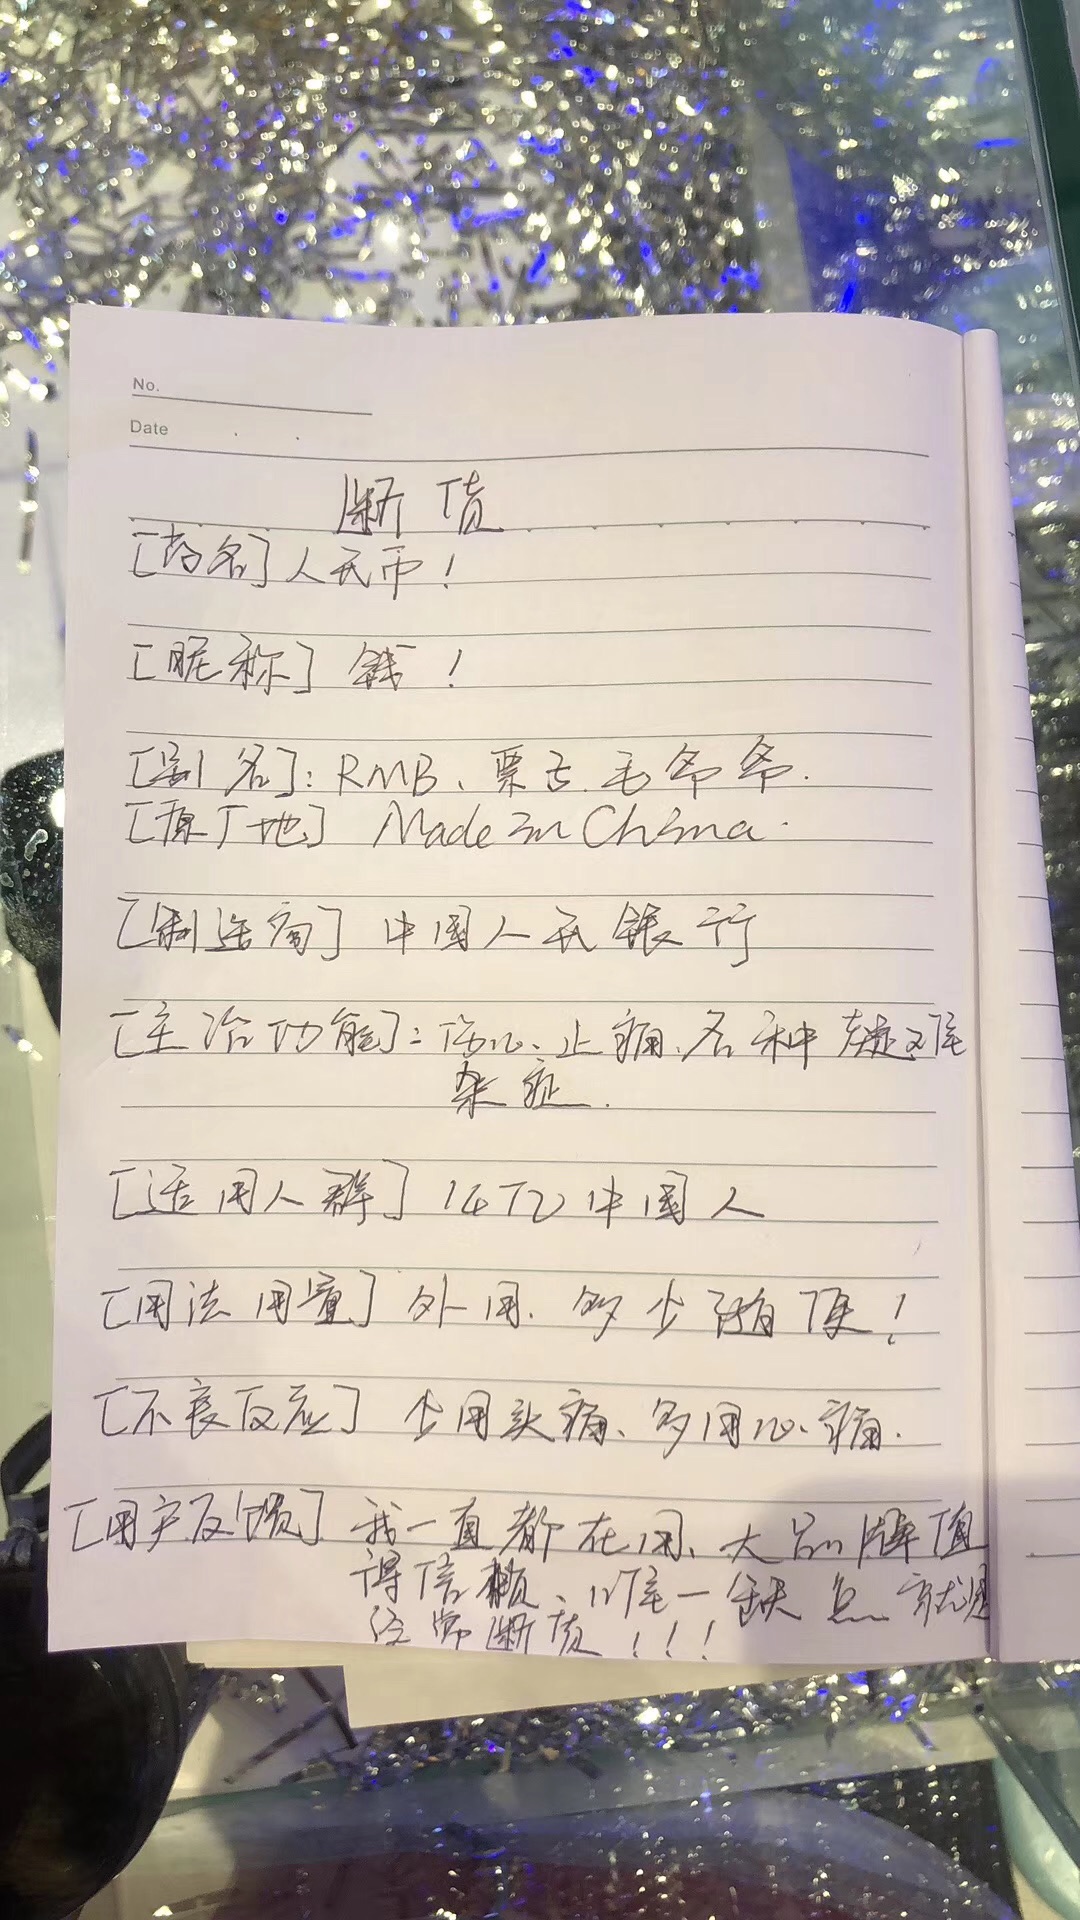 No.
Date
断货
[药名] 人民币！
[昵称] 钱！
[别名]：RMB、票子、毛爷爷.
[原厂地] Made in China.
[制造商] 中国人民银行
[主治功能]：伤心、止痛、各种疑难
杂症.
[适用人群] 14亿中国人
[用法用量] 外用、多少随便！
[不良反应] 少用头痛、多用心痛.
[用户反馈] 我一直都在用、大品牌值
得信赖、唯一缺点就是
经常断货！！！